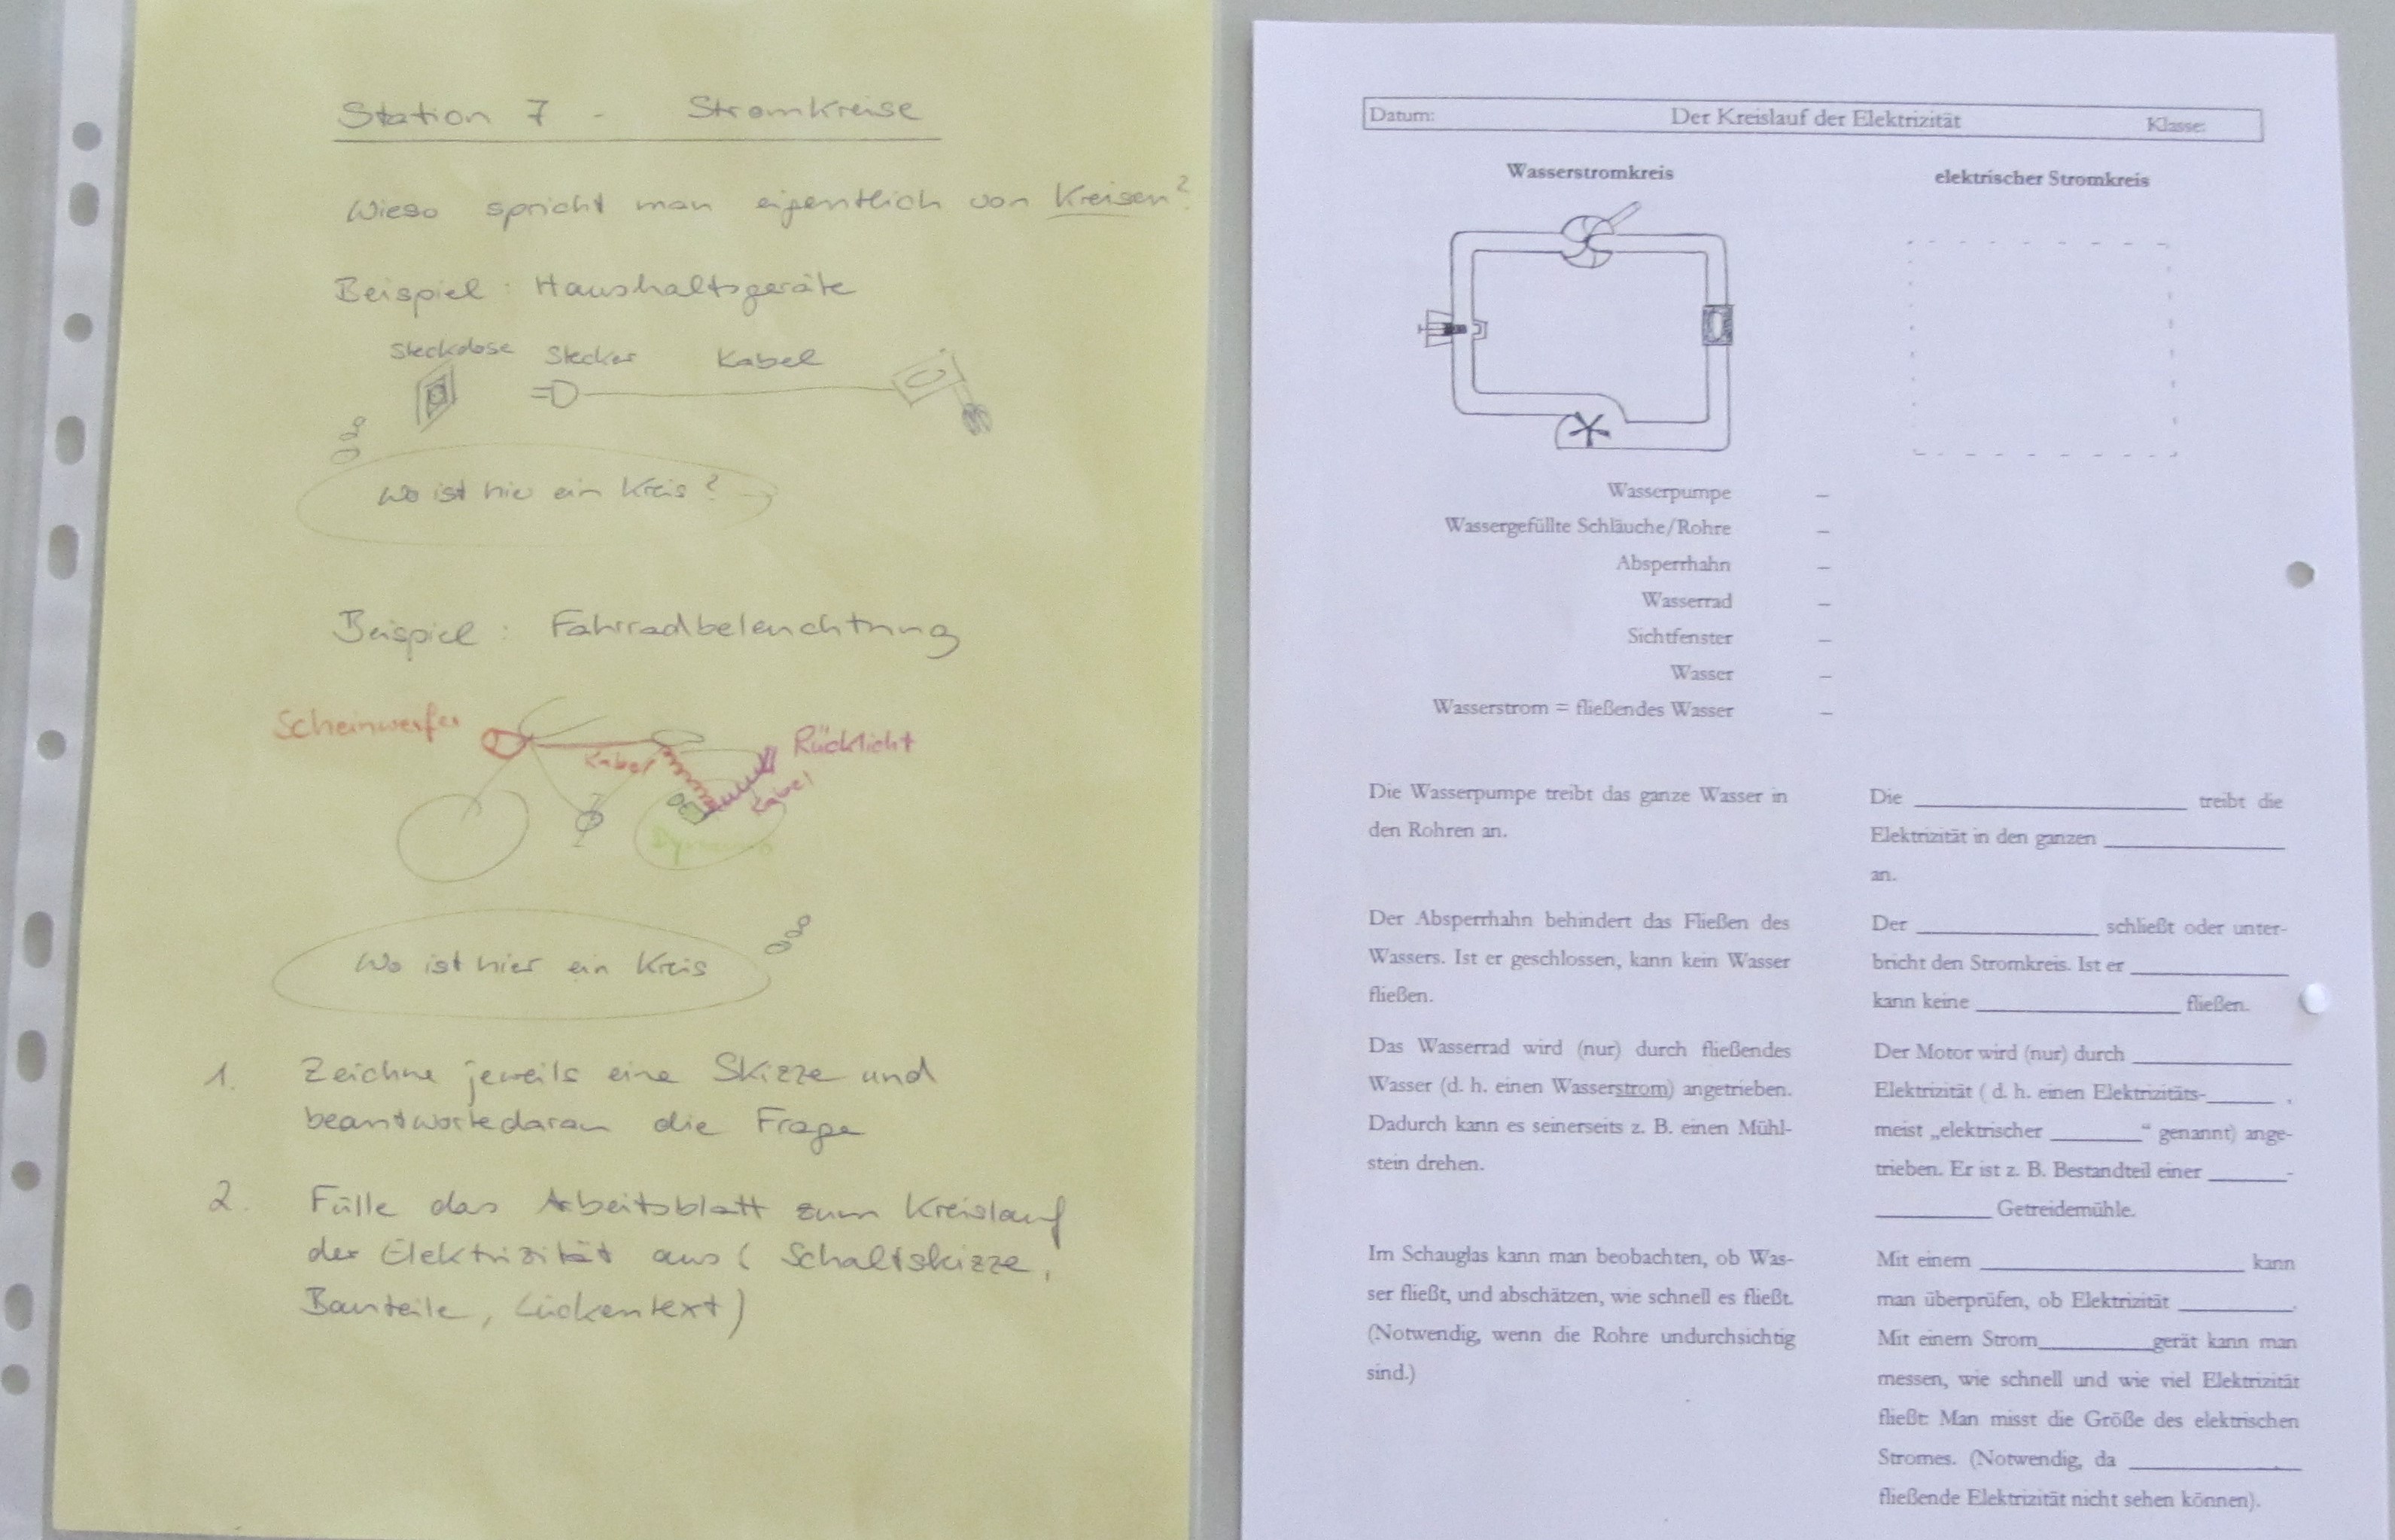 Station 7 - Stromkreise
Wieso spricht man eigentlich von Kreisen?
Beispiel: Haushaltsgeräte
Steckdose Stecker Kabel
Wo ist hier ein Kreis?
Beispiel: Fahrradbeleuchtung
Scheinwerfer
Kabel
Rücklicht
Kabel
Dynamo
Wo ist hier ein Kreis
1. Zeichne jeweils eine Skizze und
beantworte daran die Frage
2. Fülle das Arbeitsblatt zum Kreislauf
der Elektrizität aus (Schaltskizze,
Bauteile, Lückentext)
Datum: Der Kreislauf der Elektrizität Klasse:
Wasserstromkreis
elektrischer Stromkreis
Wasserpumpe –
Wassergefüllte Schläuche/Rohre –
Absperrhahn –
Wasserrad –
Sichtfenster –
Wasser –
Wasserstrom = fließendes Wasser –
Die Wasserpumpe treibt das ganze Wasser in
den Rohren an.
Die ____________ treibt die
Elektrizität in den ganzen ____________
an.
Der Absperrhahn behindert das Fließen des
Wassers. Ist er geschlossen, kann kein Wasser
fließen.
Der ____________ schließt oder unter-
bricht den Stromkreis. Ist er ____________
kann keine ____________ fließen.
Das Wasserrad wird (nur) durch fließendes
Wasser (d. h. einen Wasserstrom) angetrieben.
Dadurch kann es seinerseits z. B. einen Mühl-
stein drehen.
Der Motor wird (nur) durch ____________
Elektrizität ( d. h. einen Elektrizitäts-______ ,
meist „elektrischer ________“ genannt) ange-
trieben. Er ist z. B. Bestandteil einer _______-
__________ Getreidemühle.
Im Schauglas kann man beobachten, ob Was-
ser fließt, und abschätzen, wie schnell es fließt.
(Notwendig, wenn die Rohre undurchsichtig
sind.)
Mit einem ____________ kann
man überprüfen, ob Elektrizität __________.
Mit einem Strom__________gerät kann man
messen, wie schnell und wie viel Elektrizität
fließt: Man misst die Größe des elektrischen
Stromes. (Notwendig, da ____________
fließende Elektrizität nicht sehen können).